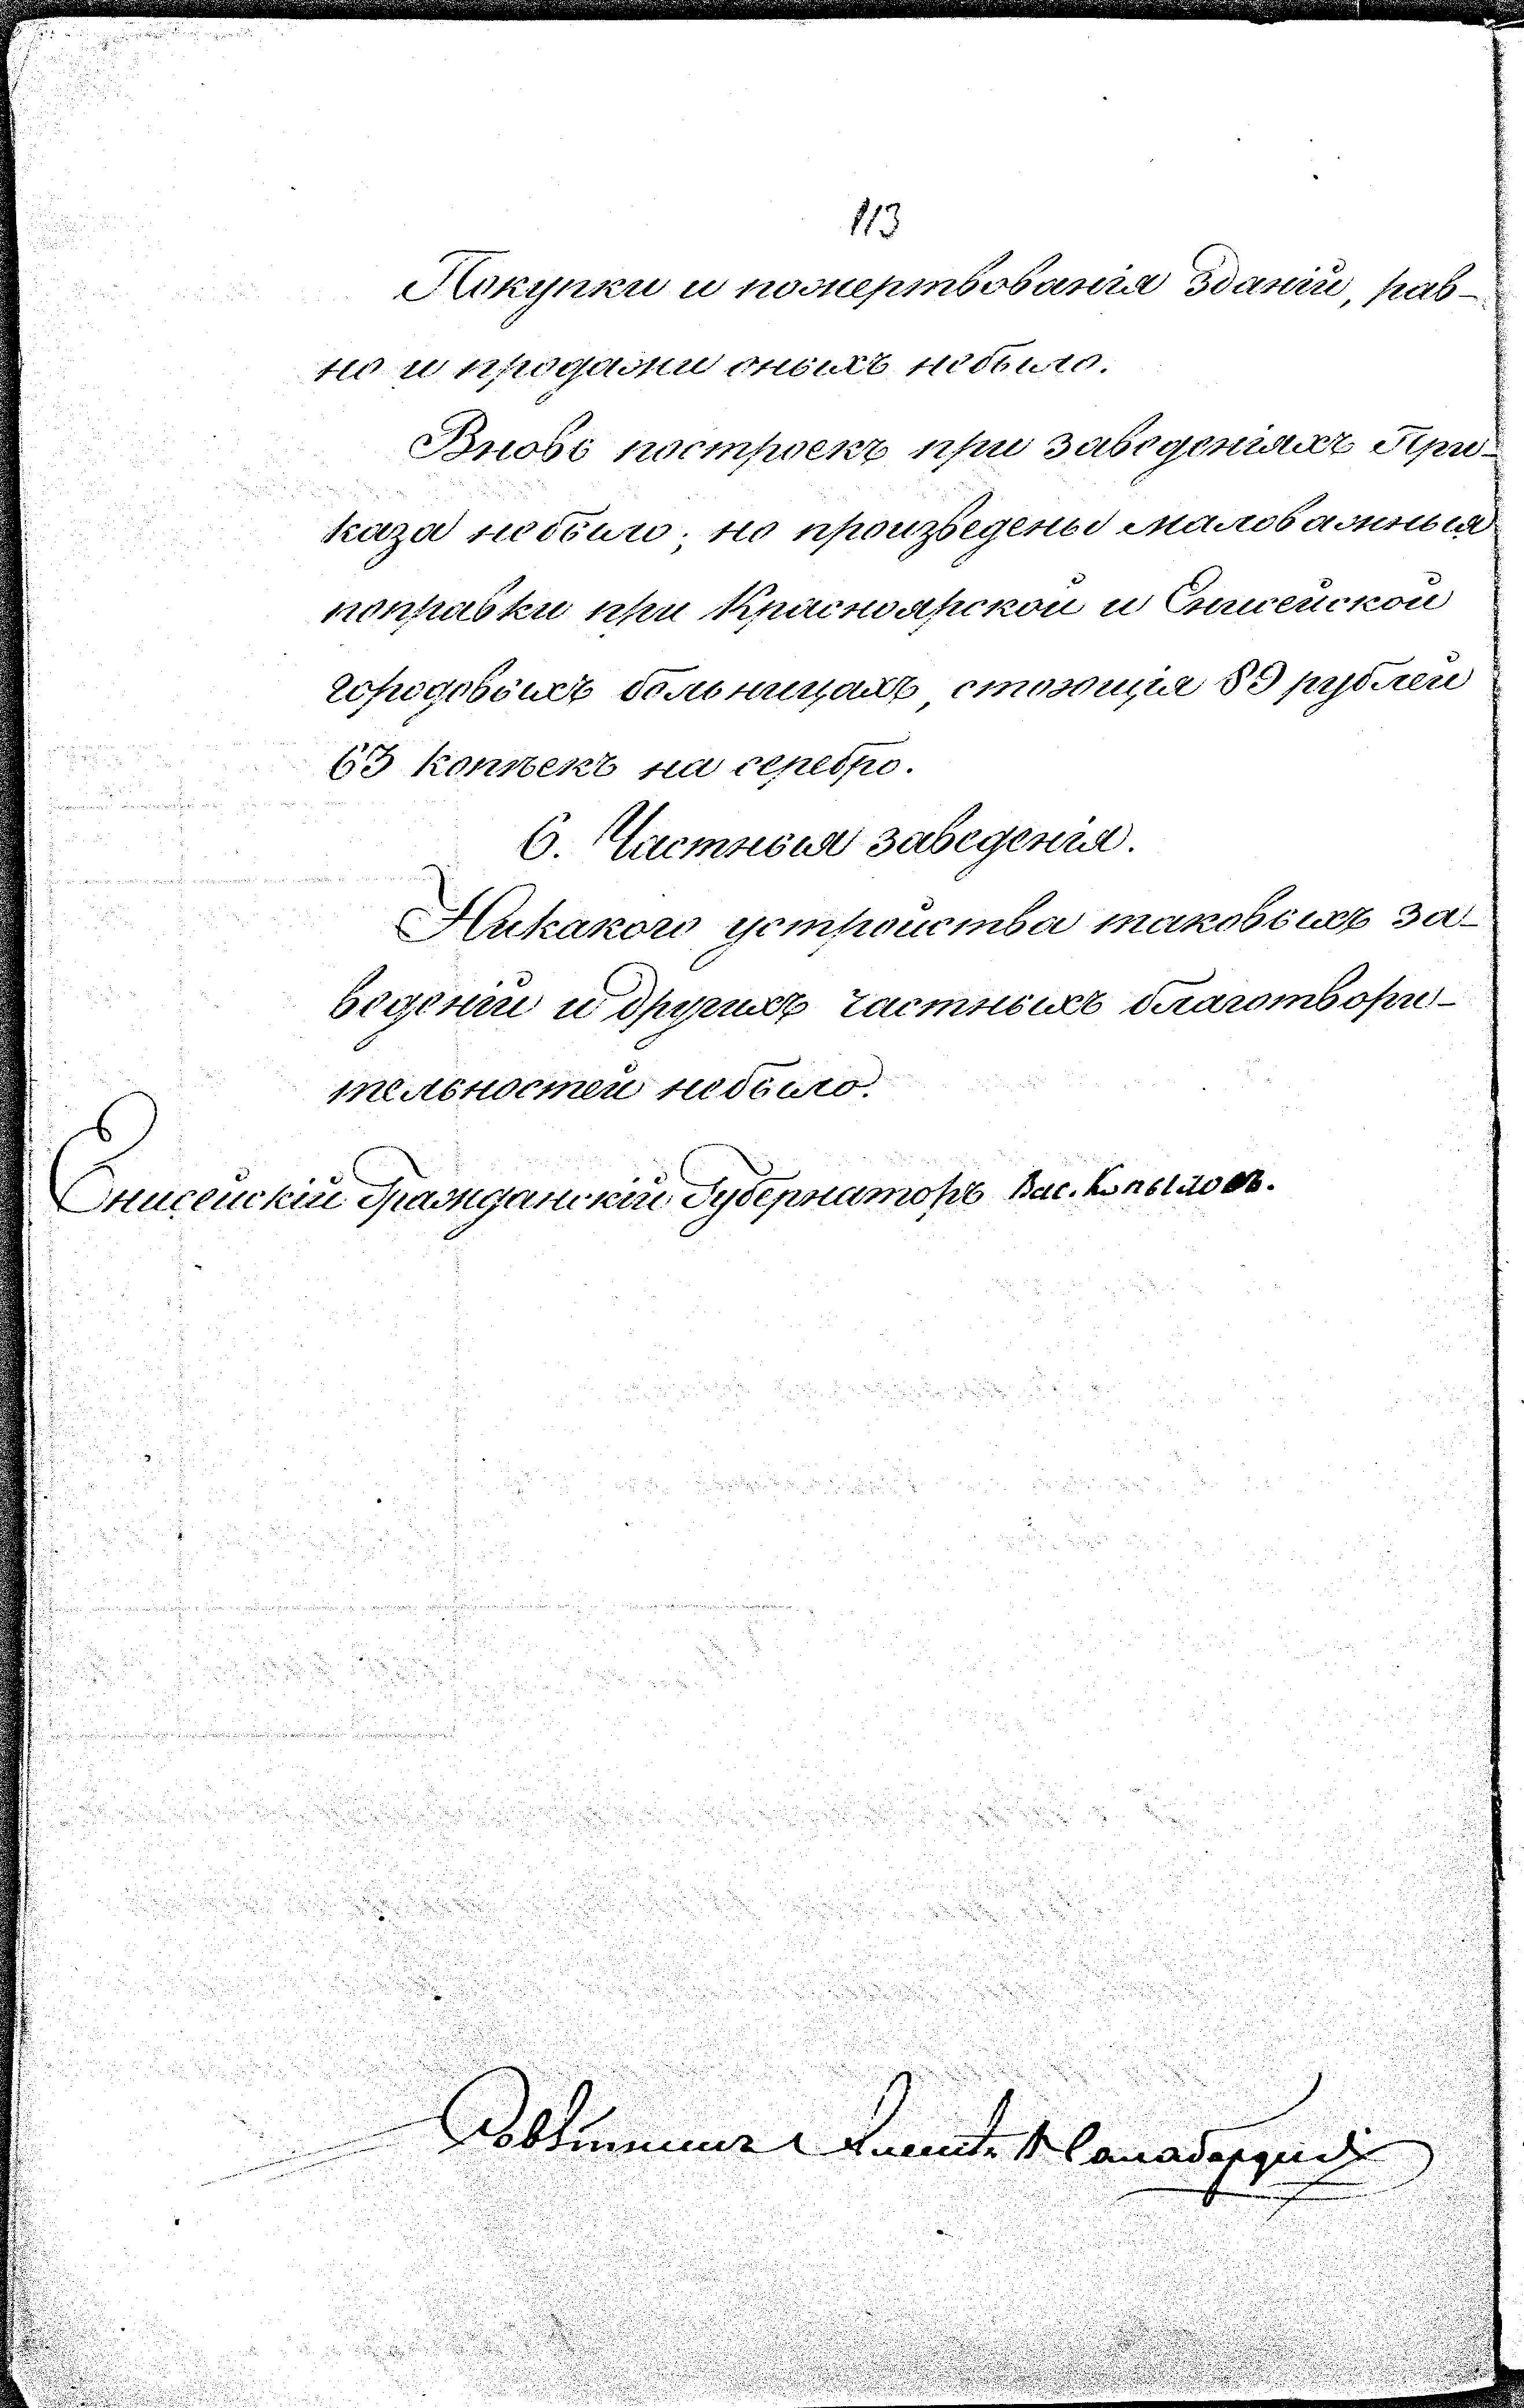 113
Покупки и пожертвованія зданій, рав-
но и продажи оныхъ небыло.
Вновь построекъ при заведеніяхъ При-
каза небыло; но произведены маловажныя
поправки при Красноярской и Енисейской
городовыхъ больницахъ, стоющія 89 рублей
63 копѣекъ на серебро.
6. Частныя заведенія.
Никакого устройства таковыхъ за-
веденій и другихъ частныхъ благотвори-
тельностей небыло.
Енисейскій Гражданскій Губернаторъ Вас. Копыловъ.
Совѣтникъ